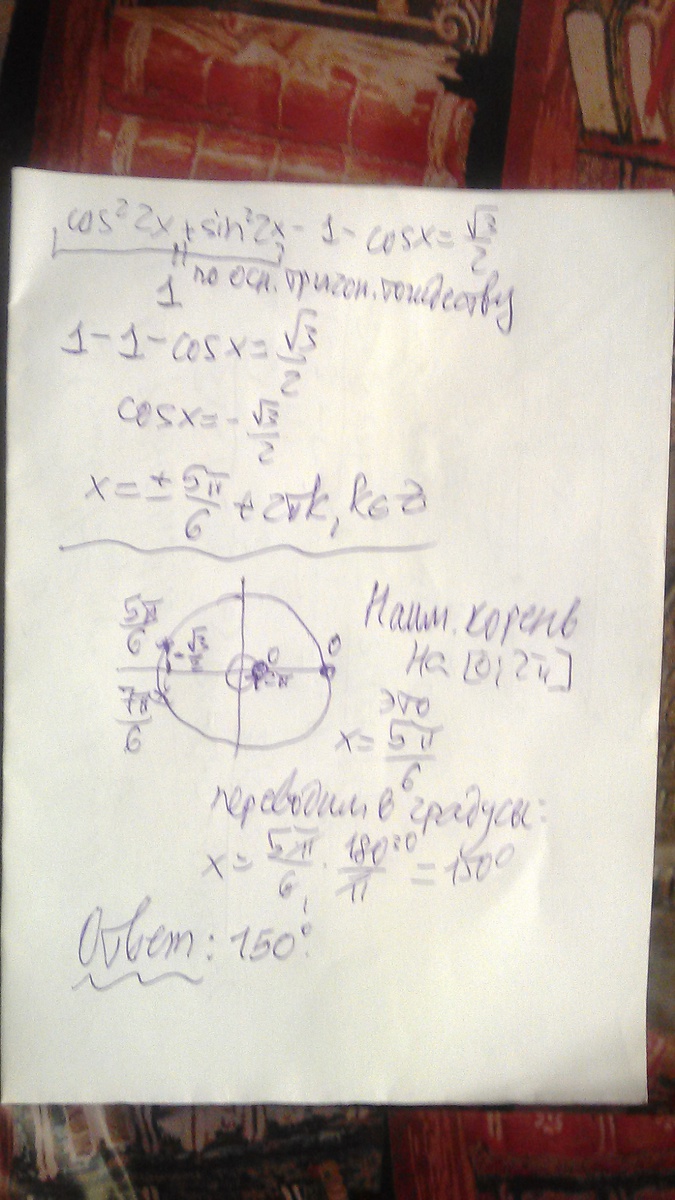 cos² 2x + sin² 2x - 1 - cosx = √3/2
1 по осн. тригон. тождеству
1 - 1 - cosx = √3/2
cosx = - √3/2
x = ± 5π/6 + 2πk, k∈Z
5π/6
- √3/2
0
0
2π
7π/6
Наим. корень
на [0; 2π]
это
x = 5π/6
переводим в градусы:
x = 5π/6 · 180°/π = 150°
Ответ: 150°.